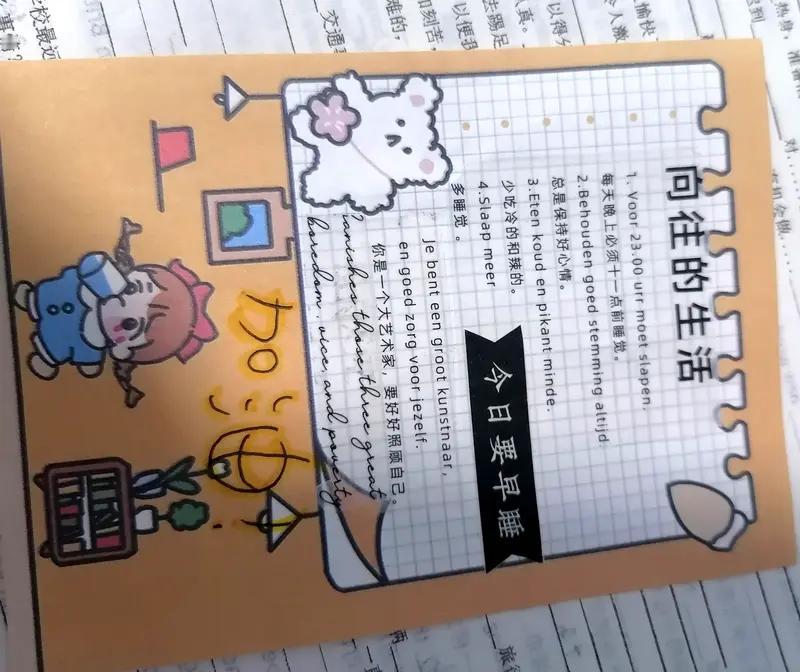 向往的生活
1. Voor 23.00 urr moet slapen.
每天晚上必须十一点前睡觉。
2.Behouden goed stemming altijd.
总是保持好心情。
3.Eten koud en pikant minde.
少吃冷的和辣的。
4.Slaap meer
多睡觉。
今日要早睡
Je bent een groot kunstnaar,
en goed zorg voor jezelf.
你是一个大艺术家，要好好照顾自己。
vanishes those three great
boredom, vice, and poverty
加油!